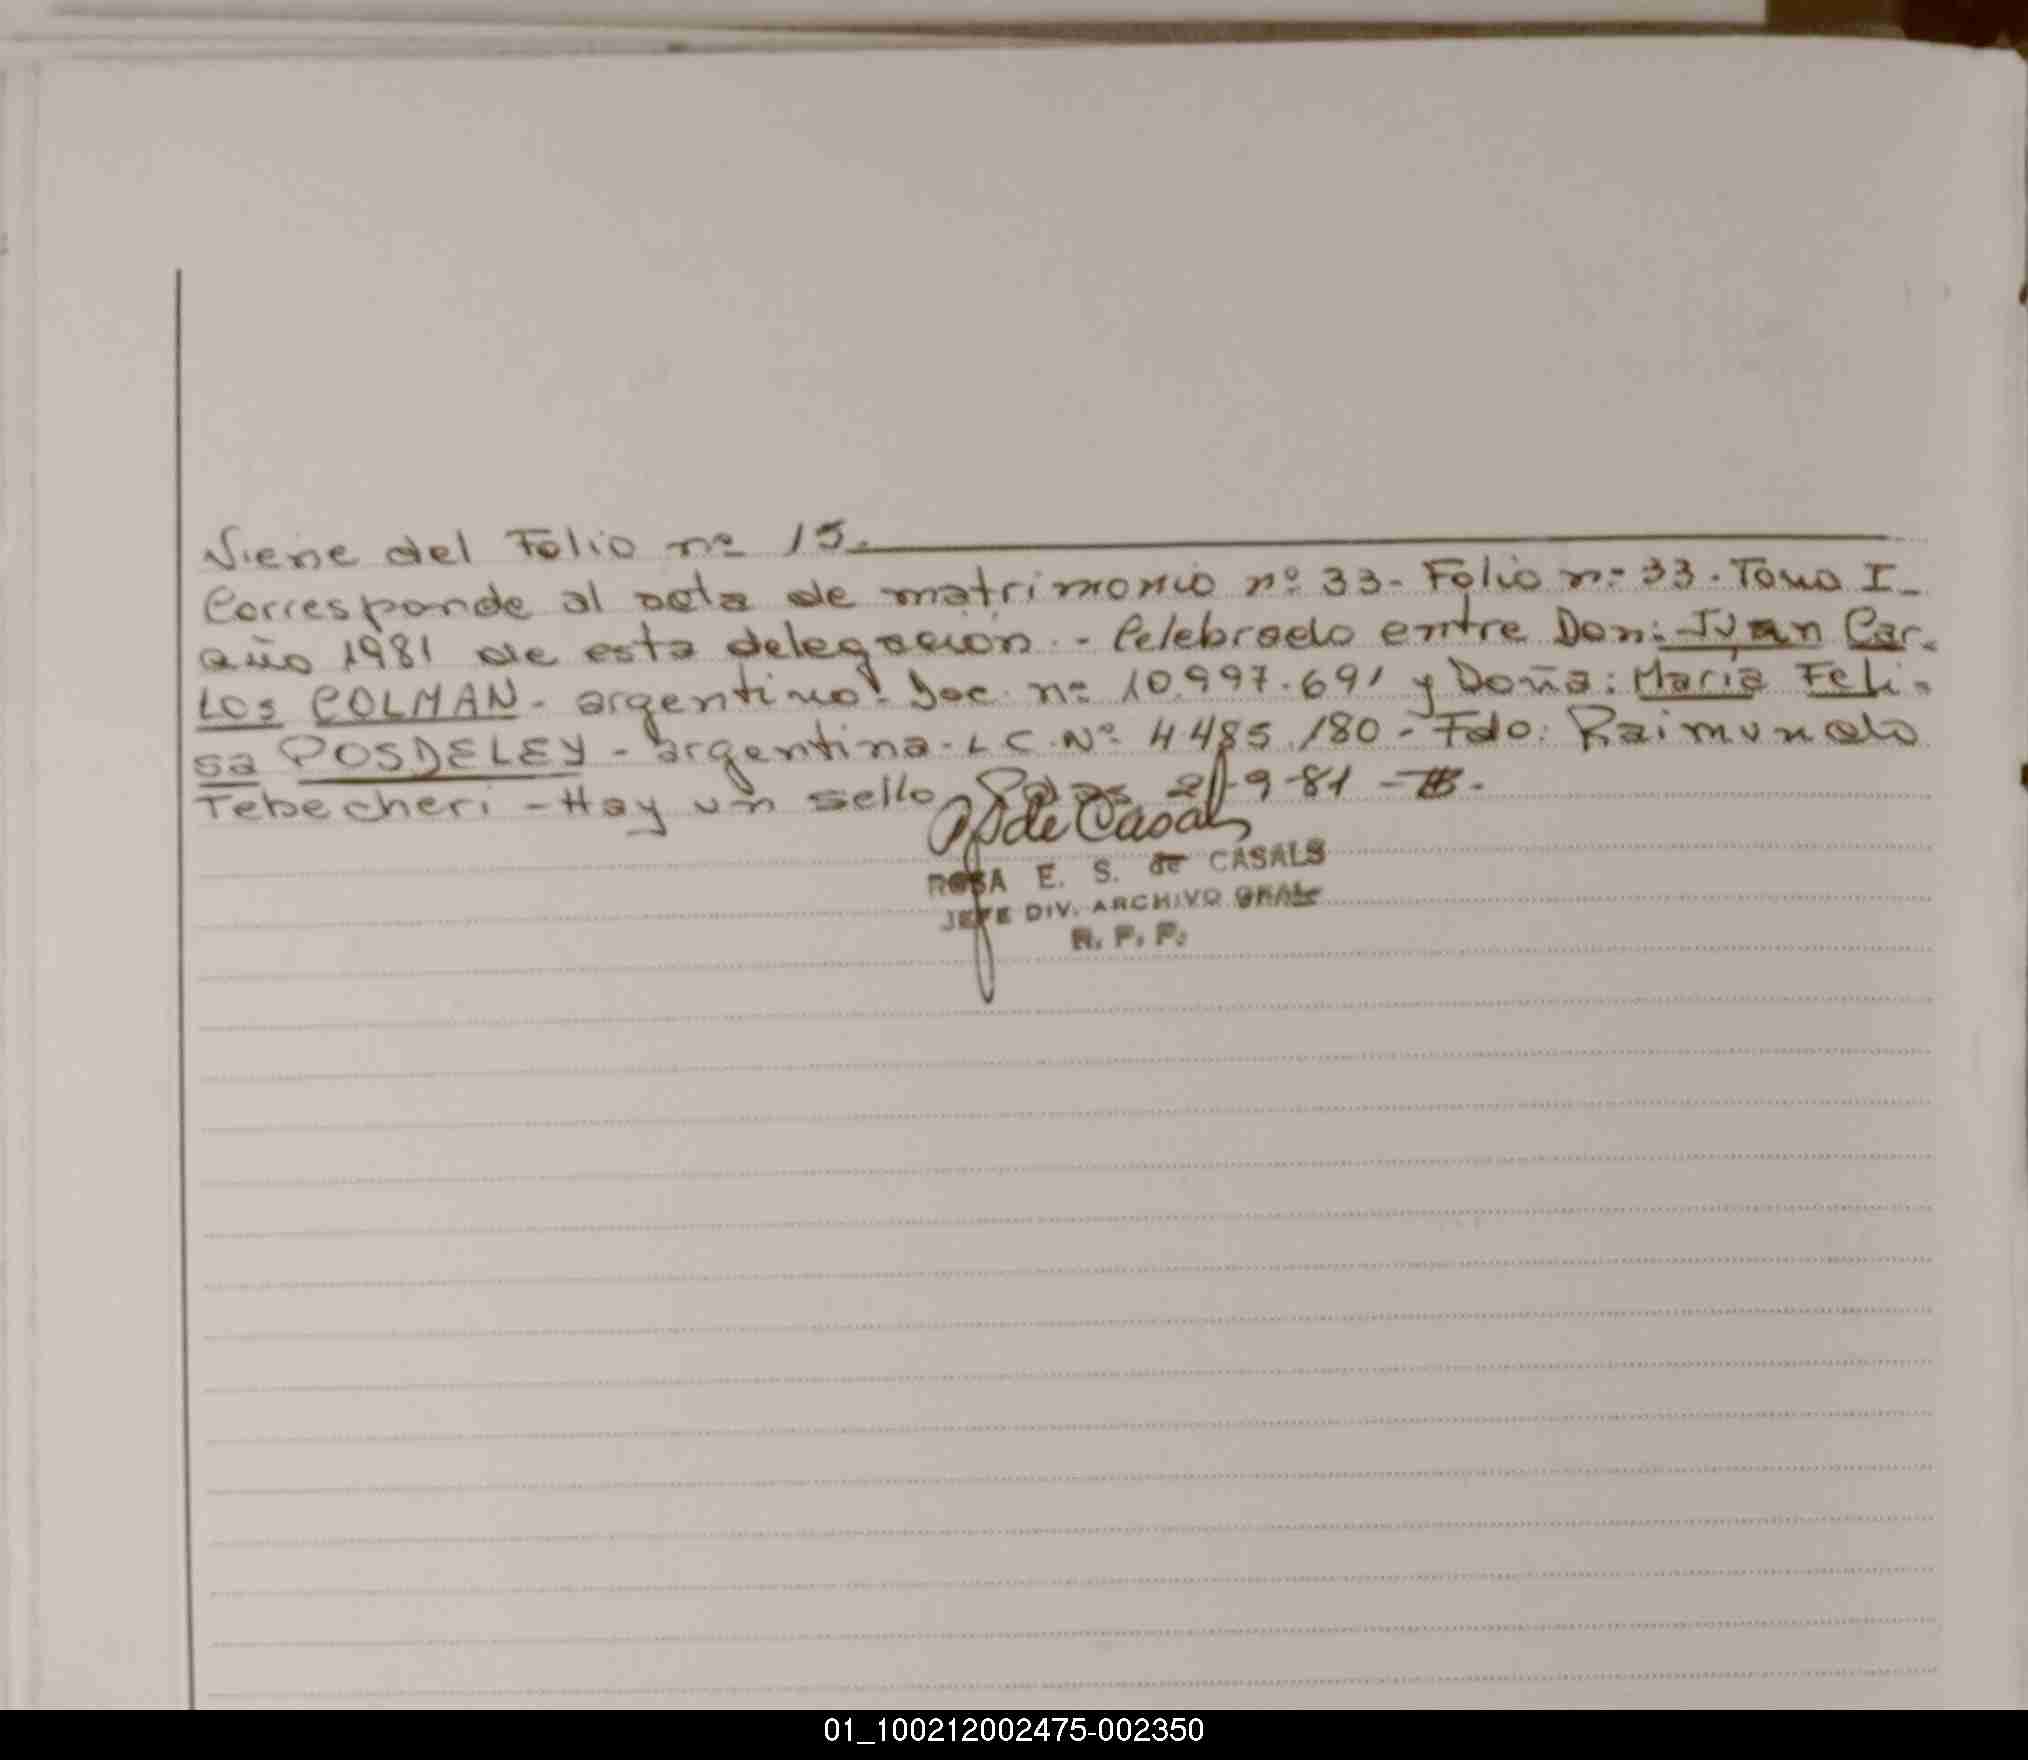 Viene del Folio nº 15.
Corresponde al acta de matrimonio nº 33- Folio nº 33. Tomo I-
año 1981 de esta delegación.- Celebrado entre Don: Juan Car-
los COLMAN- argentino. Doc. nº 10.997.691 y Doña: María Feli-
sa POSDELEY - argentina. L C. Nº 4485.180 - Fdo: Raimundo
Tebecheri - Hay un sello. Pdas 21-9-81 -
de Casals
ROSA E. S. de CASALS
JEFE DIV. ARCHIVO GRAL
R. P. P.
01_100212002475-002350